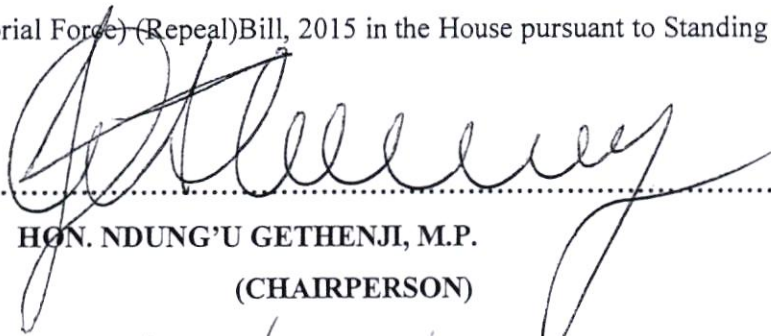 rial Force) (Repeal)Bill, 2015 in the House pursuant to Standing
HON. NDUNG'U GETHENJI, M.P.
(CHAIRPERSON)